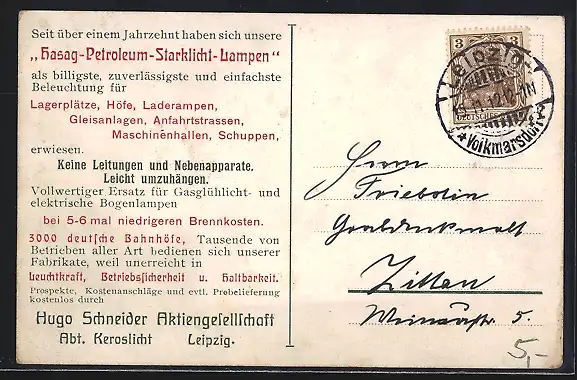 Seit über einem Jahrzehnt haben sich unsere
„Hasag-Petroleum-Starklicht-Lampen"
als billigste, zuverlässigste und einfachste
Beleuchtung für
Lagerplätze, Höfe, Laderampen,
Gleisanlagen, Anfahrtstrassen,
Maschinenhallen, Schuppen,
erwiesen.
Keine Leitungen und Nebenapparate.
Leicht umzuhängen.
Vollwertiger Ersatz für Gasglühlicht- und
elektrische Bogenlampen
bei 5-6 mal niedrigeren Brennkosten.
3000 deutsche Bahnhöfe, Tausende von
Betrieben aller Art bedienen sich unserer
Fabrikate, weil unerreicht in
Leuchtkraft, Betriebssicherheit u. Haltbarkeit.
Prospekte, Kostenanschläge und evtl. Probelieferung
kostenlos durch
Hugo Schneider Aktiengesellschaft
Abt. Keroslicht Leipzig.
3 3
Leipzig-
Volkmarsdorf
Herrn
Grabdenkmalt
Zittau
5.
5,-